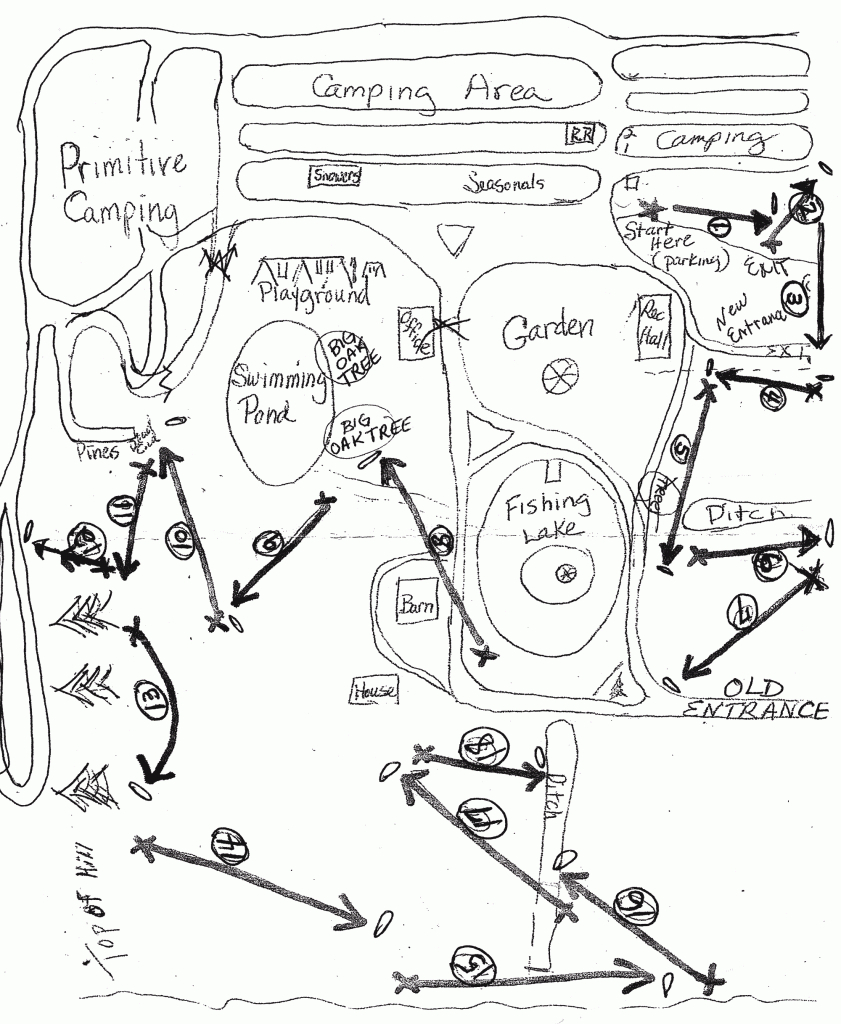 Camping Area
RR
2
1
Camping
Showers
Seasonals
Primitive
Camping
Start
Here
(parking)
1
2
EXIT
3
New
Entrance
EXIT
Playground
Office
Garden
Rec
Hall
BIG
OAK
TREE
Swimming
Pond
BIG
OAK TREE
4
5
Pines
Dead
End
Tree
Ditch
Fishing
Lake
11
10
9
8
6
12
7
Barn
House
OLD
ENTRANCE
13
18
Ditch
17
14
Top of Hill
16
15